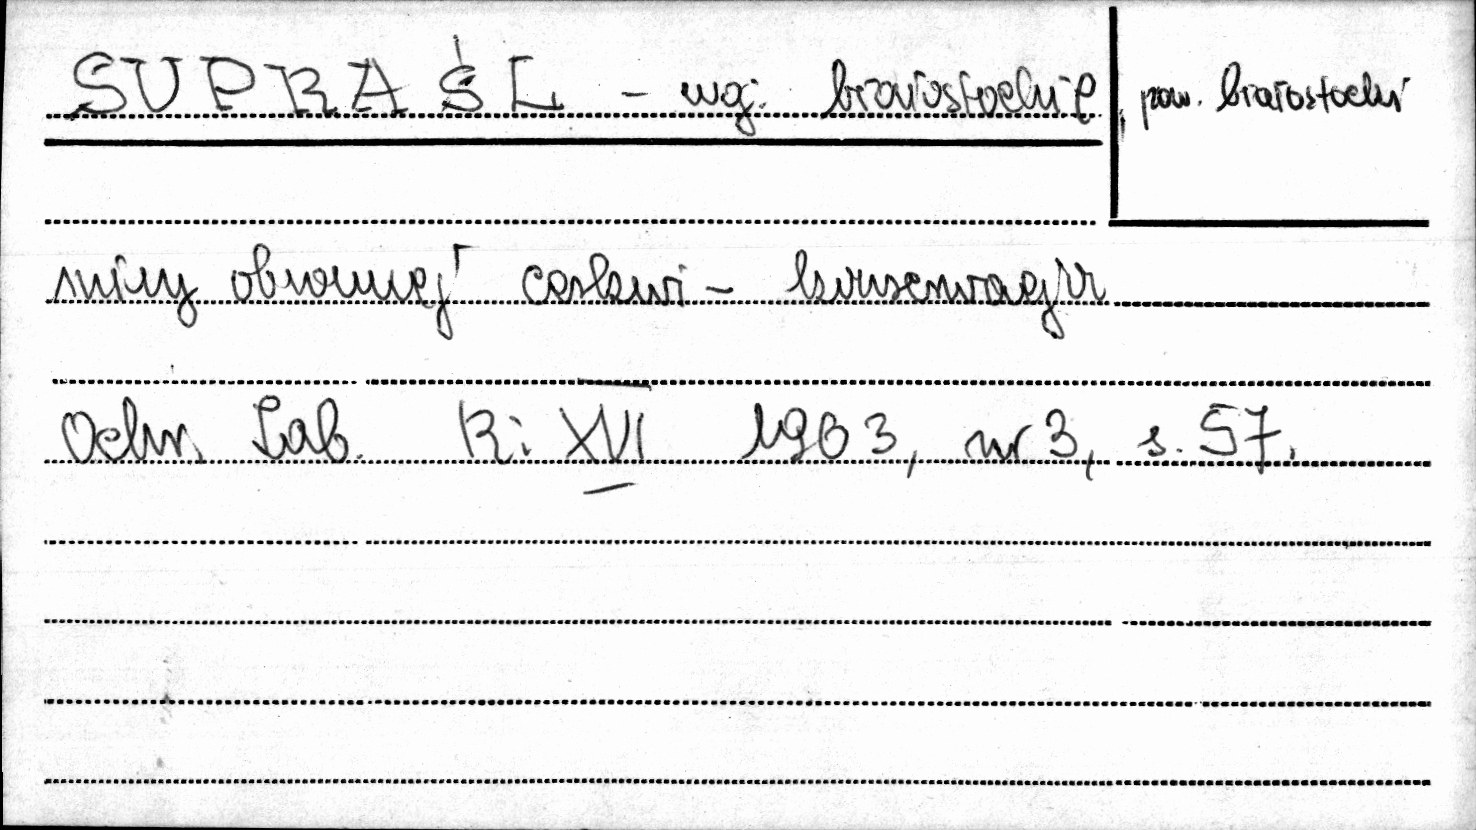 SUPRAŚL – wg. białostockie, pow. białostocki
ruiny obronnej cerkwi – konserwacja
Ochr. Zab. R: XVI 1963, nr 3, s. 57.